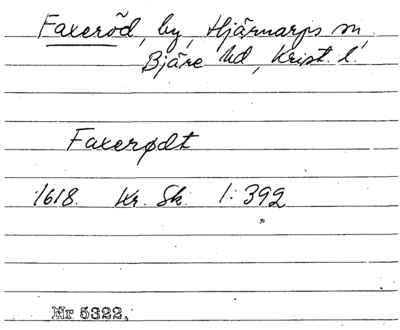 Faxeröd, by, Hjärnarps sn,
Bjäre hd, Krist. l.
Faxerødt
1618. Kr. Sk. 1:392
Nr 5322.